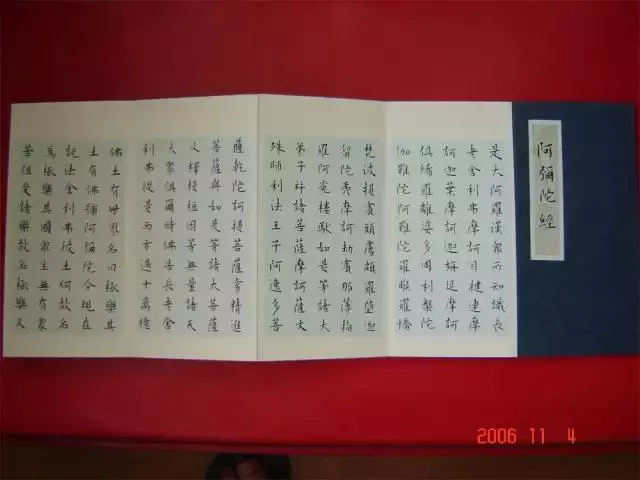 阿彌陀經
是大阿羅漢眾所知識長
老舍利弗摩訶目犍連摩
訶迦葉摩訶迦旃延摩訶
俱絺羅離婆多周利槃陀
伽難陀阿難陀羅睺羅憍
梵波提賓頭盧頗羅墮迦
留陀夷摩訶劫賓那薄拘
羅阿㝹樓馱如是等諸大
弟子并諸菩薩摩訶薩文
殊師利法王子阿逸多菩
薩乾陀訶提菩薩常精進
菩薩與如是等諸大菩薩
及釋提桓因等無量諸天
大眾俱爾時佛告長老舍
利弗從是西方過十萬億
佛土有世界名曰極樂其
土有佛號阿彌陀今現在
說法舍利弗彼土何故名
為極樂其國眾生無有眾
苦但受諸樂故名極樂又
2006 11 4